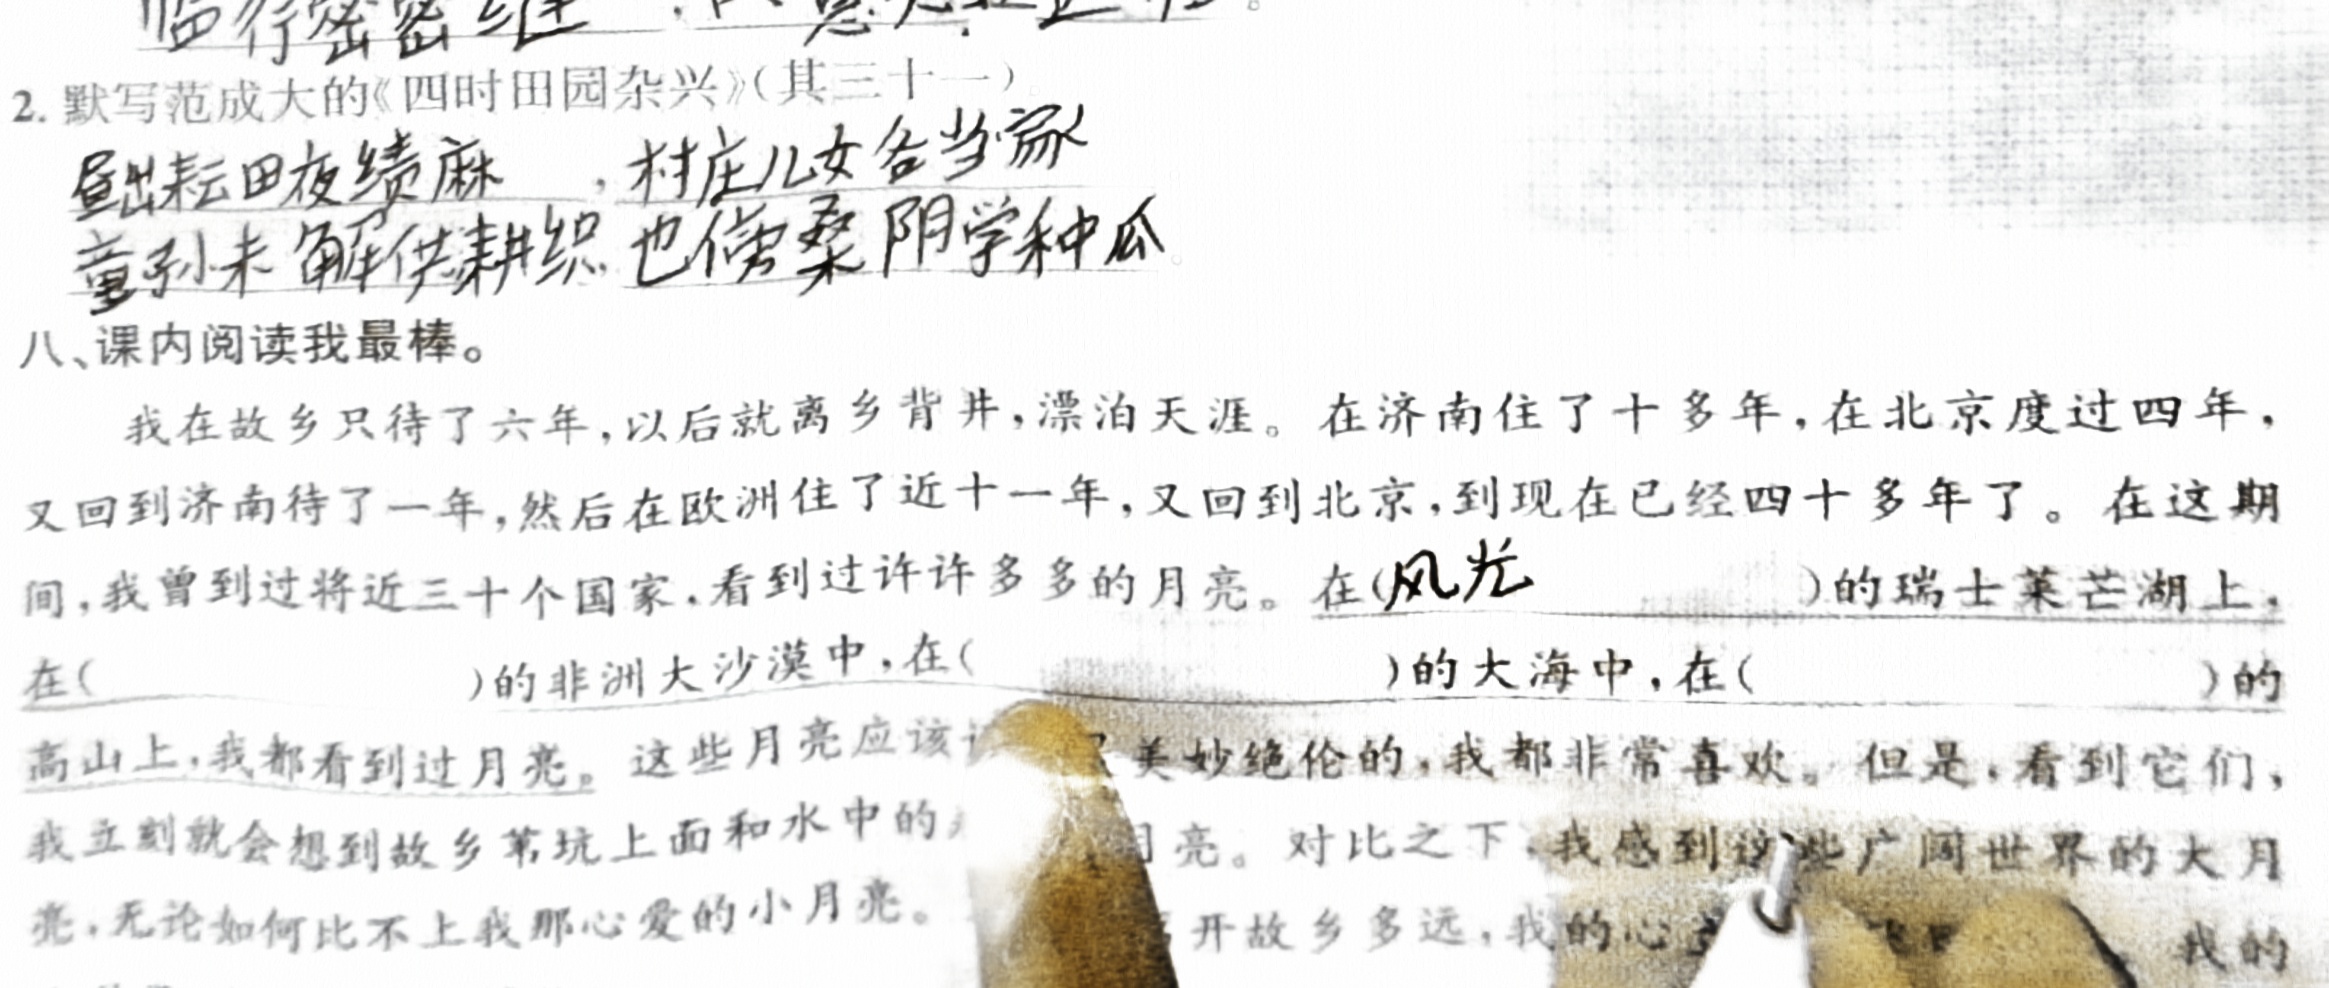 临行密密缝
2. 默写范成大的《四时田园杂兴》(其三十一)
昼出耘田夜绩麻,村庄儿女各当家
童孙未解供耕织 也傍桑阴学种瓜。
八、课内阅读我最棒。
我在故乡只待了六年,以后就离乡背井,漂泊天涯。在济南住了十多年,在北京度过四年,
又回到济南待了一年,然后在欧洲住了近十一年,又回到北京,到现在已经四十多年了。在这期
间,我曾到过将近三十个国家,看到过许许多多的月亮。在(风光 )的瑞士莱芒湖上,
在( )的非洲大沙漠中,在( )的大海中,在( )的
高山上,我都看到过月亮。这些月亮应该 美妙绝伦的,我都非常喜欢。但是,看到它们,
我立刻就会想到故乡苇坑上面和水中的 月亮。对比之下,我感到这些广阔世界的大月
亮,无论如何比不上我那心爱的小月亮。 开故乡多远,我的心 我的